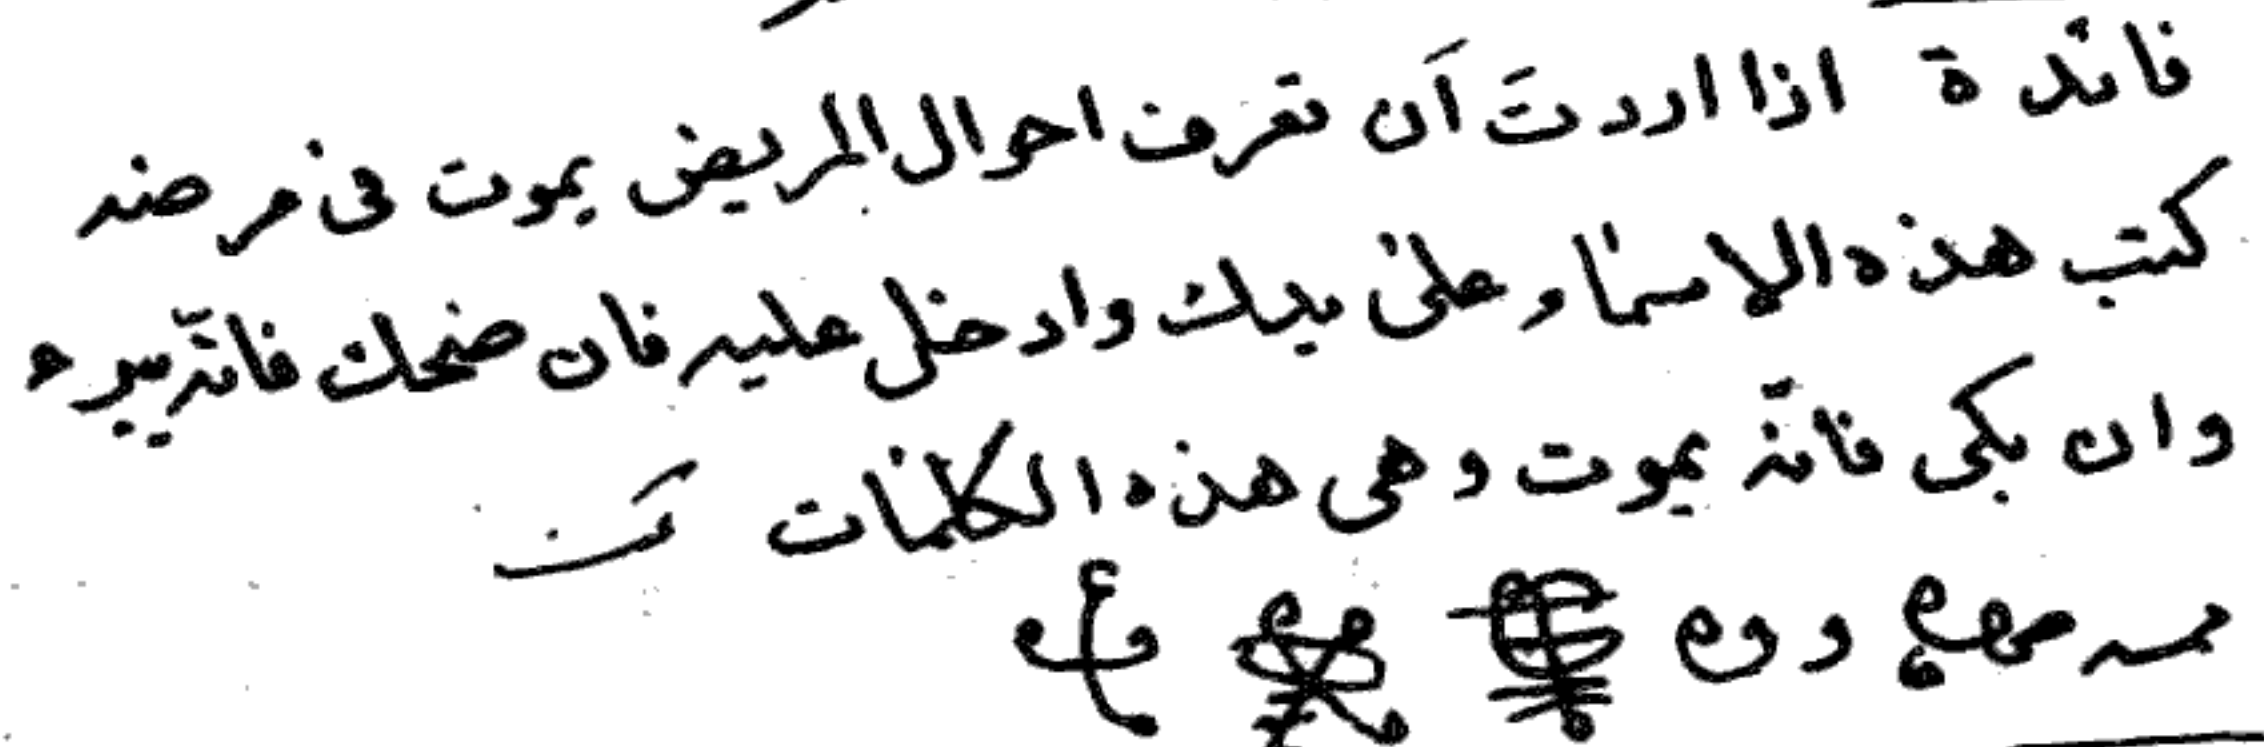 فائدة اذا اردتَ أَن تعرف احوال المريض يموت فى مرضه
كتب هذه الاسماء على يدك وادخل عليه فان ضحك فانّه يبرء
وان بكى فانّه يموت وهى هذه الكلمات